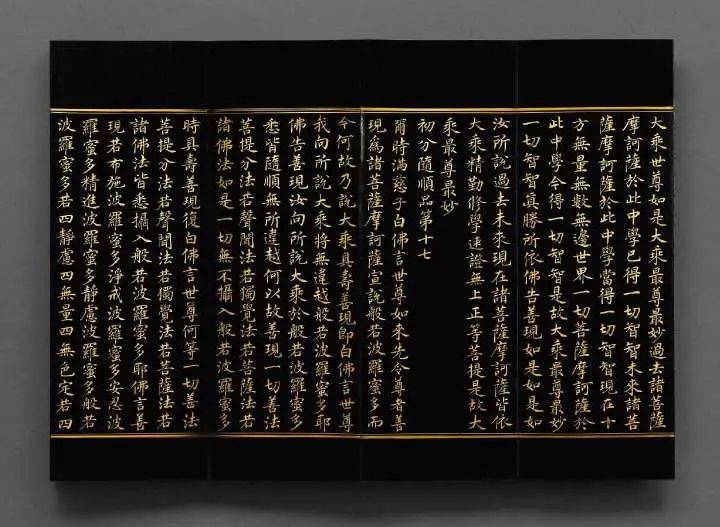 大乘世尊如是大乘最尊最妙過去諸菩薩
摩訶薩於此中學已得一切智智未來諸菩
薩摩訶薩於此中學當得一切智智現在十
方無量無數無邊世界一切菩薩摩訶薩於
此中學今得一切智智是故大乘最尊最妙
一切智智真勝所依佛告善現如是如是如
汝所說過去未來現在諸菩薩摩訶薩皆依
大乘精勤修學速證無上正等菩提是故大
乘最尊最妙
初分隨順品第十七
爾時滿慈子白佛言世尊如來先令尊者善
現為諸菩薩摩訶薩宣說般若波羅蜜多而
今何故乃說大乘具壽善現即白佛言世尊
我向所說大乘將無違越般若波羅蜜多耶
佛告善現汝向所說大乘於般若波羅蜜多
悉皆隨順無所違越何以故善現一切善法
菩提分法若聲聞法若獨覺法若菩薩法若
諸佛法如是一切無不攝入般若波羅蜜多
時具壽善現復白佛言世尊何等一切善法
菩提分法若聲聞法若獨覺法若菩薩法若
諸佛法皆悉攝入般若波羅蜜多耶佛言善
現若布施波羅蜜多淨戒波羅蜜多安忍波
羅蜜多精進波羅蜜多靜慮波羅蜜多般若
波羅蜜多若四靜慮四無量四無色定若四